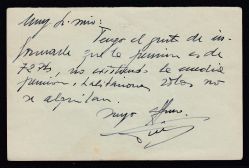 Muy Sr. mio:
Tengo el gusto de in-
formarle que la pension es de
72 Pts, no existiendo la media
pension, habitaciones solas no
se alquilan.
suyo affmo.